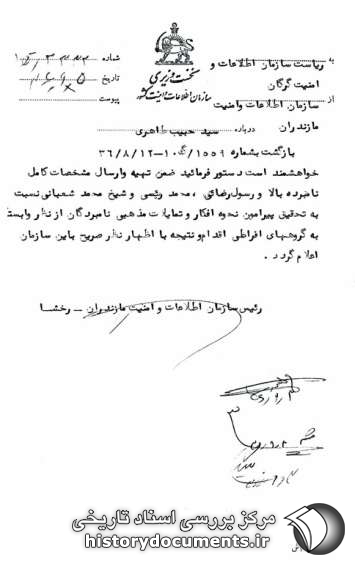 شماره
تاریخ
پیوست
نخست وزیری
سازمان اطلاعات و امنیت کشور
به ریاست سازمان اطلاعات و
امنیت گرگان
از سازمان اطلاعات وامنیت
مازندران درباره سید حبیب طاهری
بازگشت بشماره ۱۵۵۹/ ۱۰ - ۳۶/۸/۱۲
خواهشمند است دستور فرمائید ضمن تهیه وارسال مشخصات کامل
نامبرده بالا و رسول رضائی ، محمد رئیسی و شیخ محمد شعبانی نسبت
به تحقیق پیرامون نحوه افکار و تمایلات مذهبی نامبردگان از نظر وابسته
به گروههای افراطی اقدام و نتیجه با اظهار نظر صریح باین سازمان
اعلام گردد .
رئیس سازمان اطلاعات و امنیت مازندران - رخشا
مرکز بررسی اسناد تاریخی
historydocuments.ir